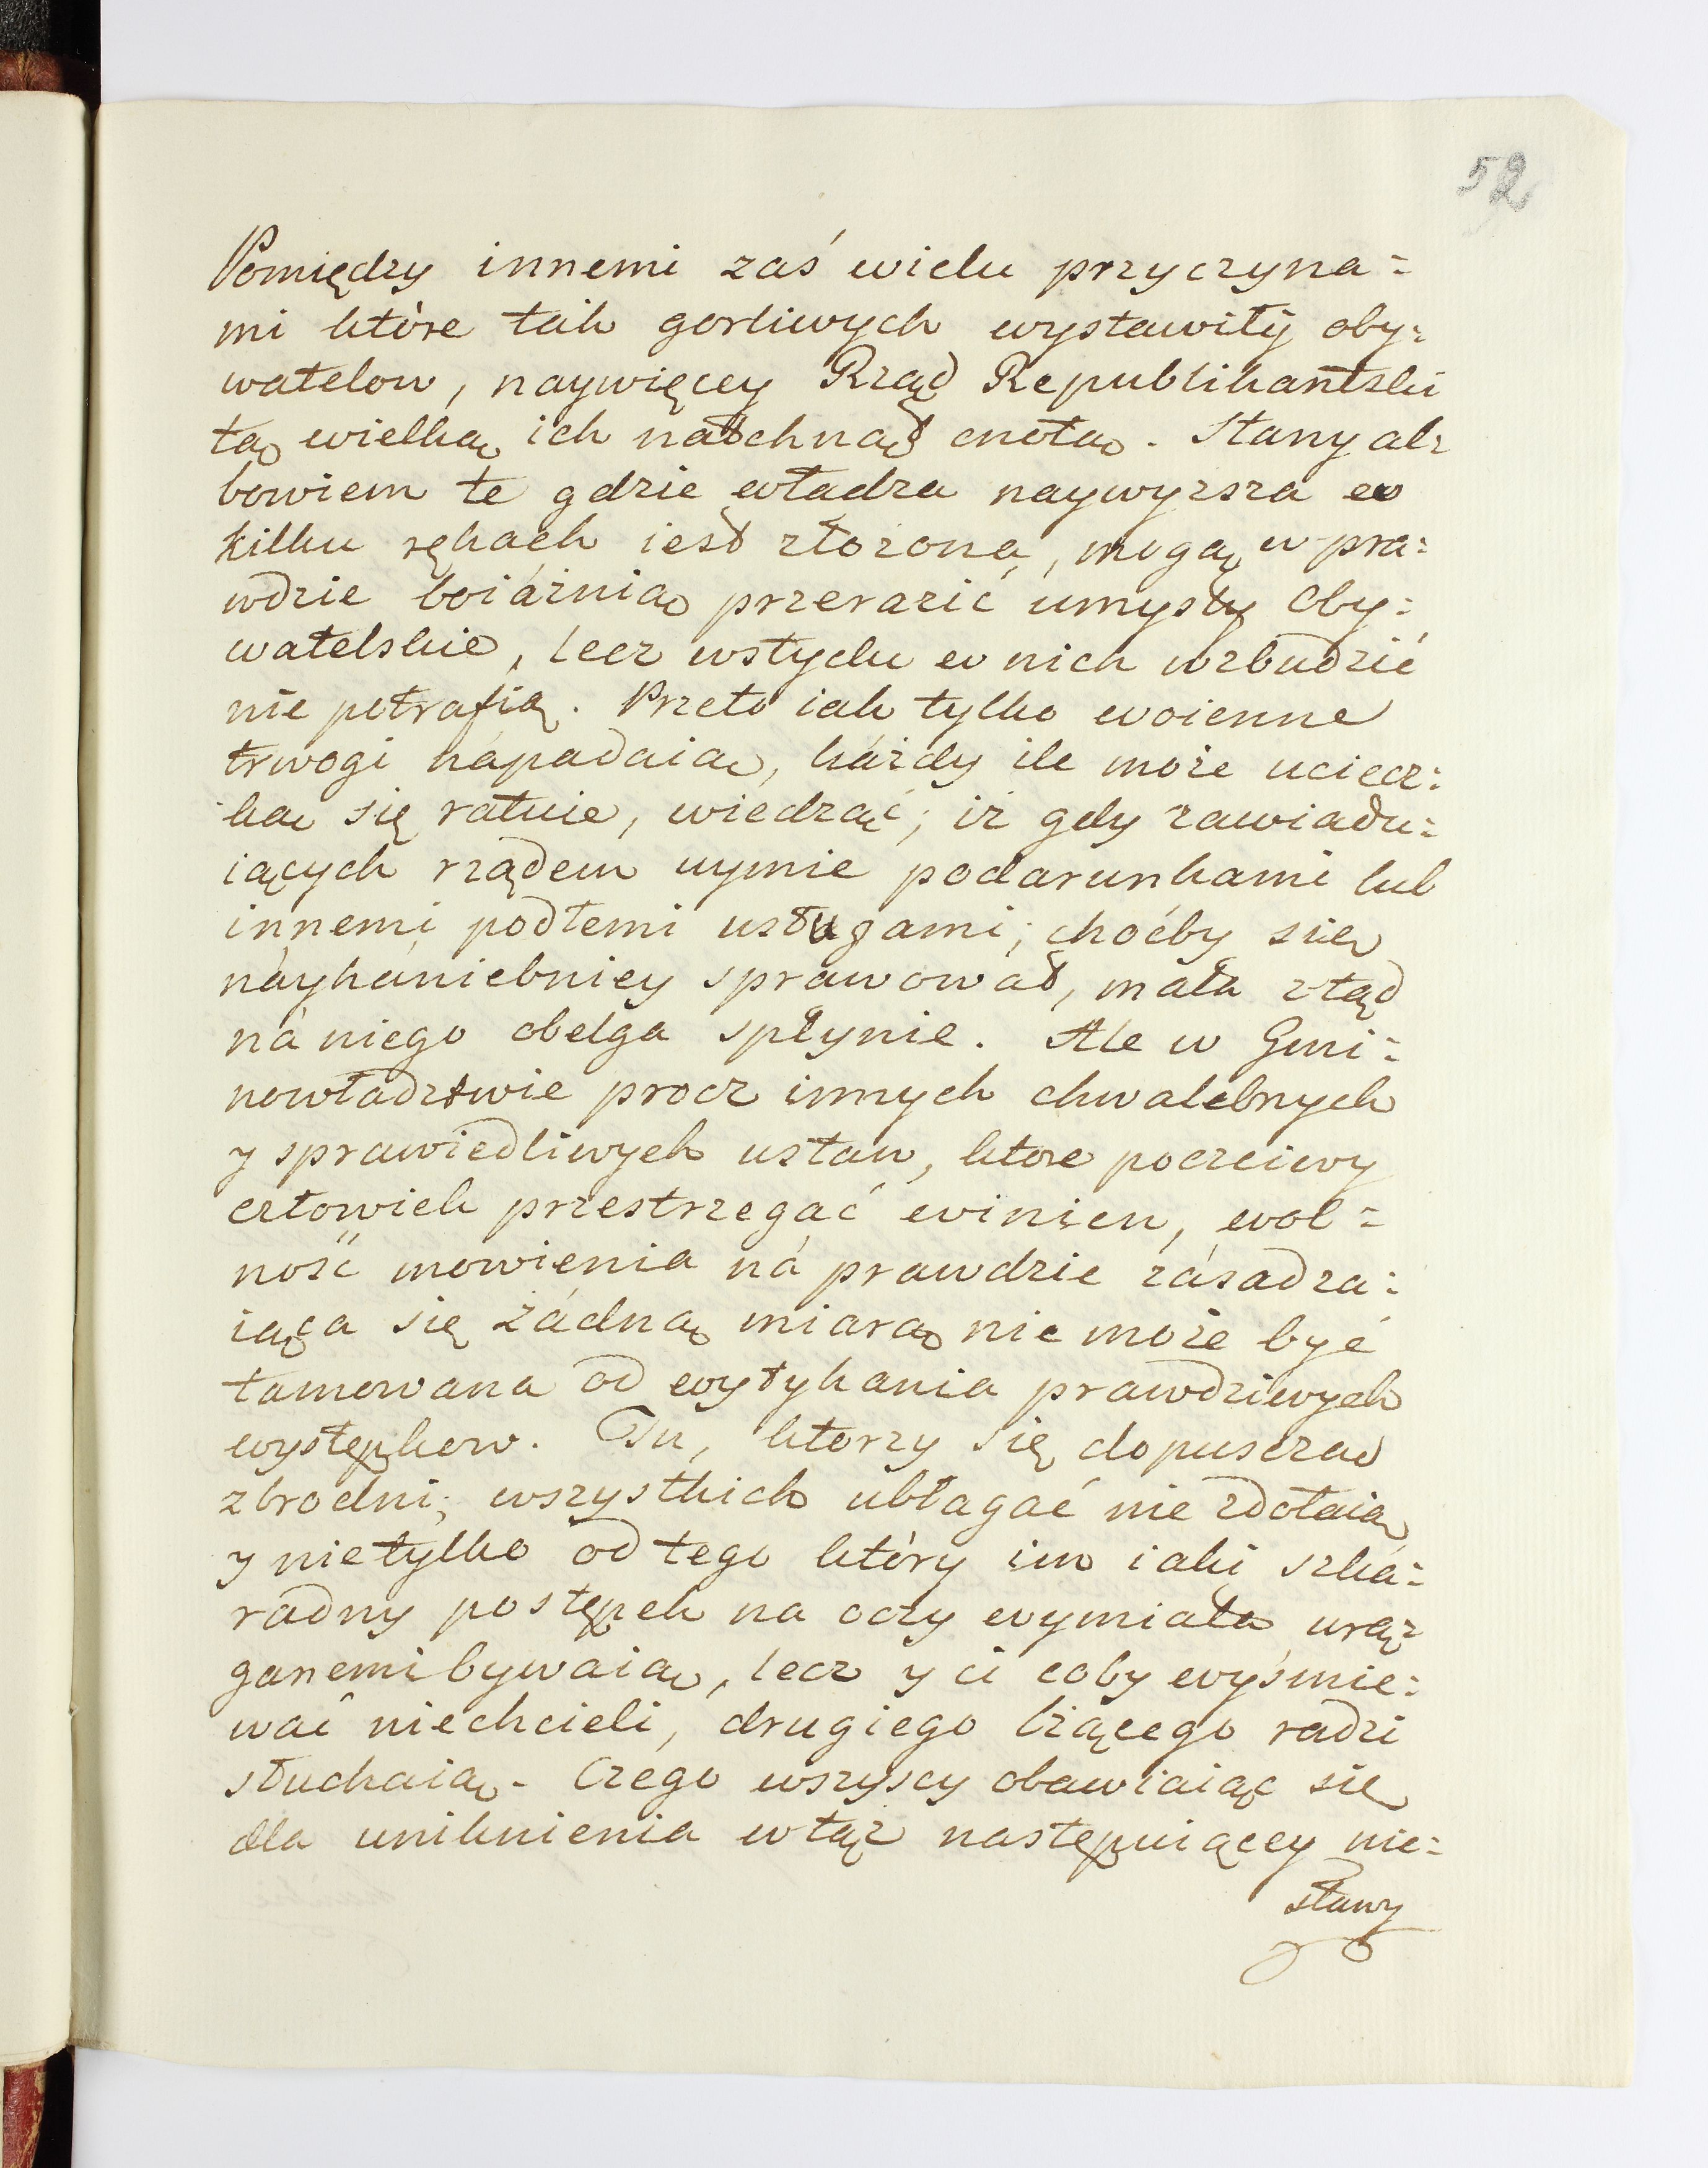 52
Pomiędzy innemi zaś wielu przyczyna=
mi które ták gorliwych wystawiły oby=
watelow, naywięcey Rząd Republikantski
tą wielką ich natchnął cnotą. Stany al=
bowiem te gdzie władza naywyzsza w
kilku rękách iest złożona, mogą w pra=
wdzie boiáźnią przerazić umysły Oby=
watelskie, lecz wstydu w nich wzbudzić
nie potrafią. Przeto iak tylko woienne
trwogi nápadaią, káżdy ile może uciecz=
ką się ratuie, wiedząć; iż gdy zawiadu=
iących rządem uymie podarunkami lub
innemi podłemi usługami; choćby się
náyhániebniey spráwował, mała ztąd
ná niego obelga spłynie. Ale w Gmi=
nowładztwie procz innych chwalebnych
y sprawiedliwych ustaw, ktore poczciwy
człowiek przestrzegać winien, wol=
ność mowienia ná prawdzie zásadza=
iąca się żádną miarą nie może być
tamowana od wytykania prawdziwych
występkow. Tu, ktorzy się dopuszczaą
zbrodni; wszystkich ubłagać nie zdołaią
y nietylko od tego który im iaki szká=
radny postępek na oczy wymiata urą=
ganemi bywaią, lecz y ci coby wyśmie=
wać niechcieli, drugiego lżącego radzi
słuchaią. Czego wszyscy obawiaiąc się
dla uniknienia wtąż następuiącey nie=
sławy